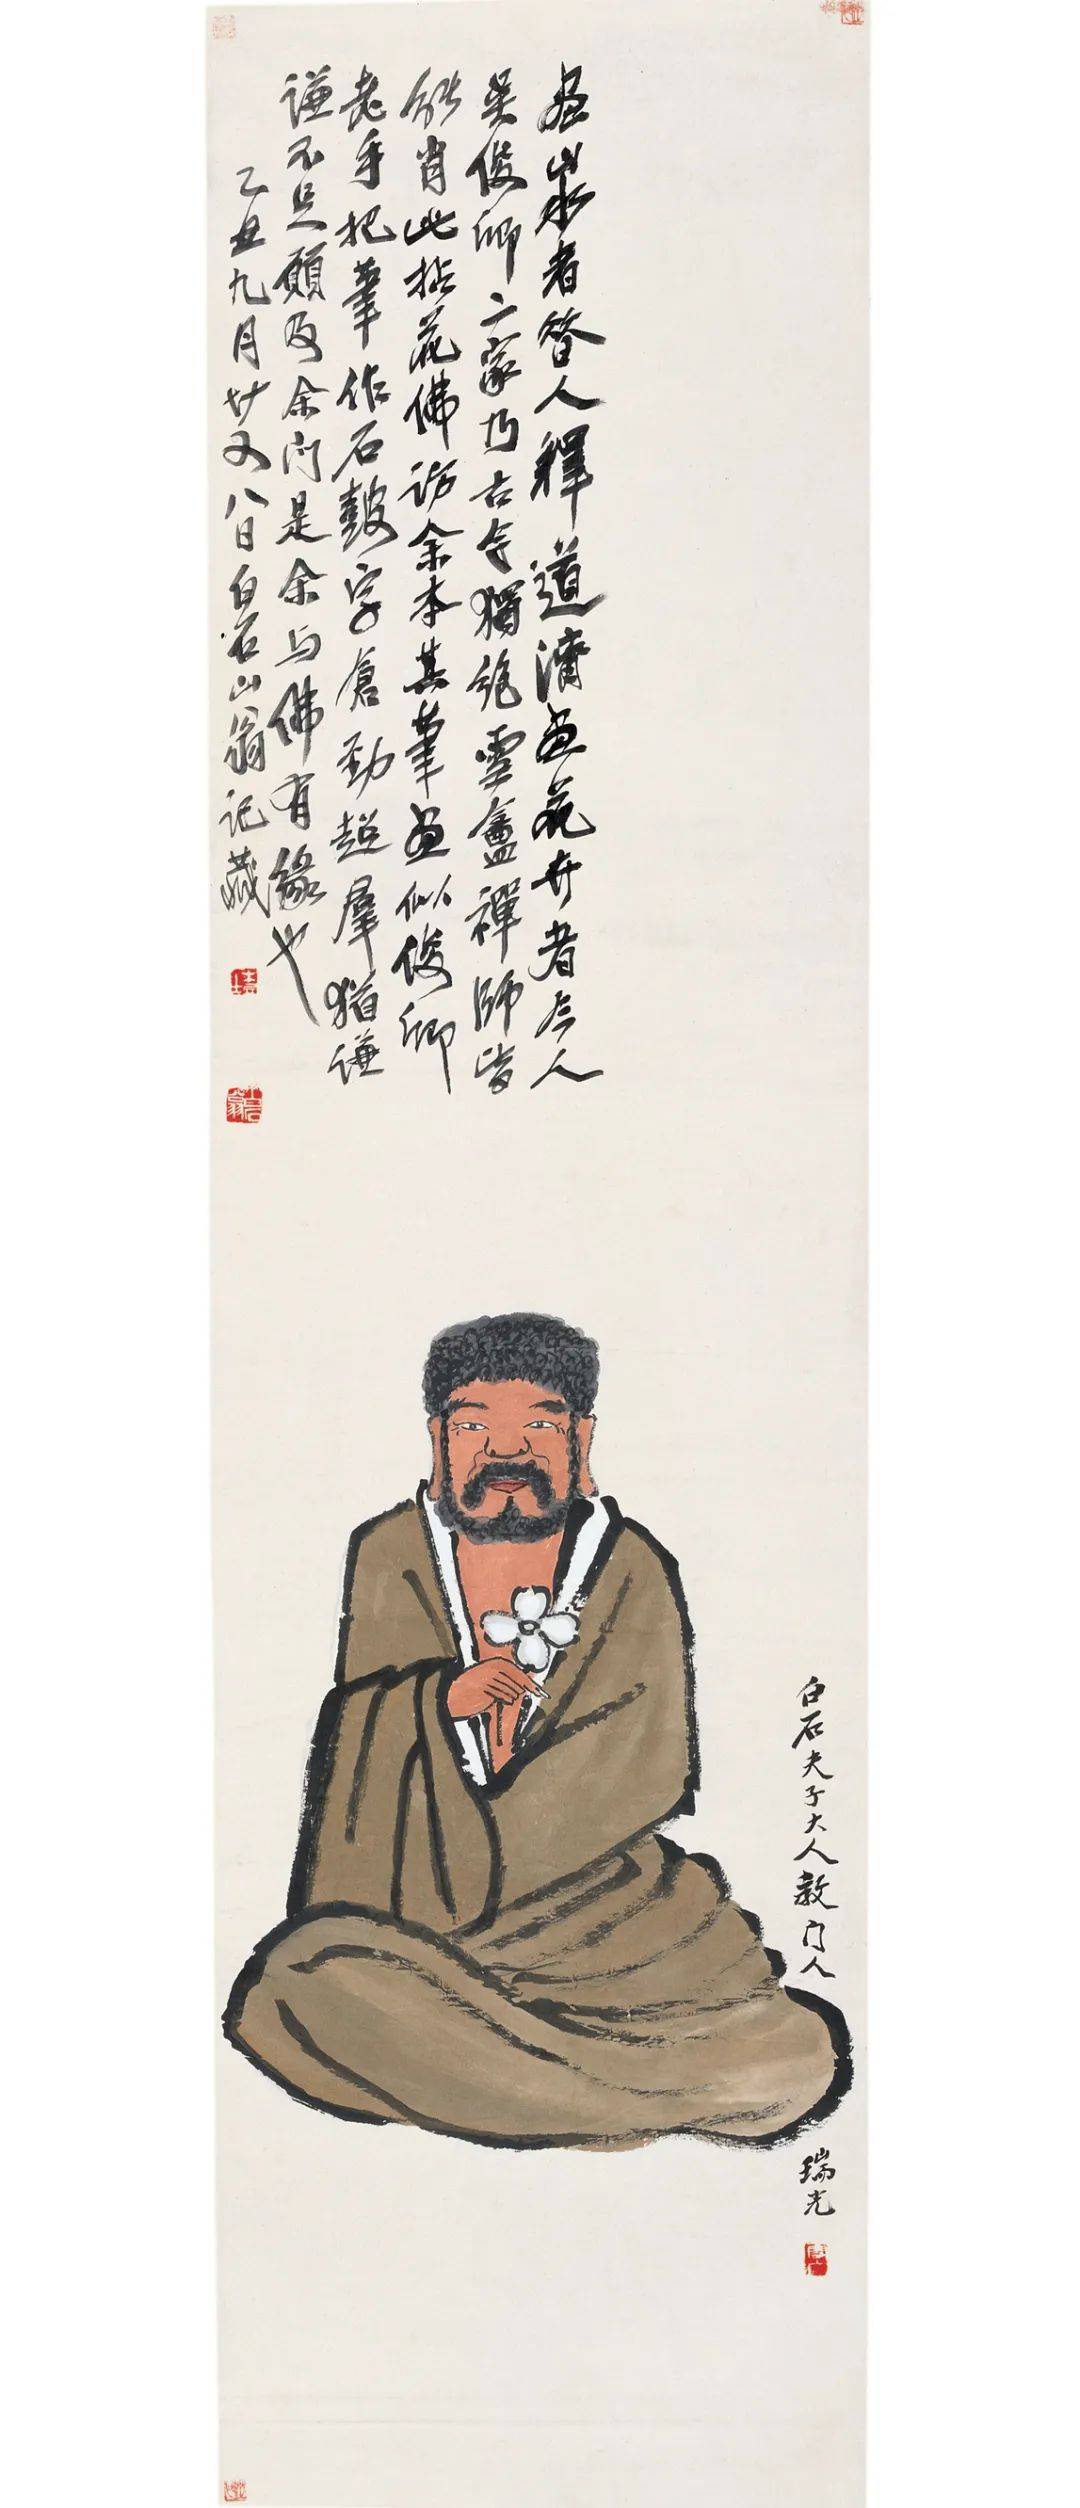 畫山水者昔人釋道濟畫花卉者今人
吳俊卿二家乃古今獨絕雪盦禪師皆
能肖此拈花佛訪余本其筆畫似俊卿
老手把筆作石鼓字倉勁超羣猶謙
謙不足願及余門是余与佛有緣也
乙丑九月廿又八日白石山翁記藏
白石夫子大人教門人
瑞光